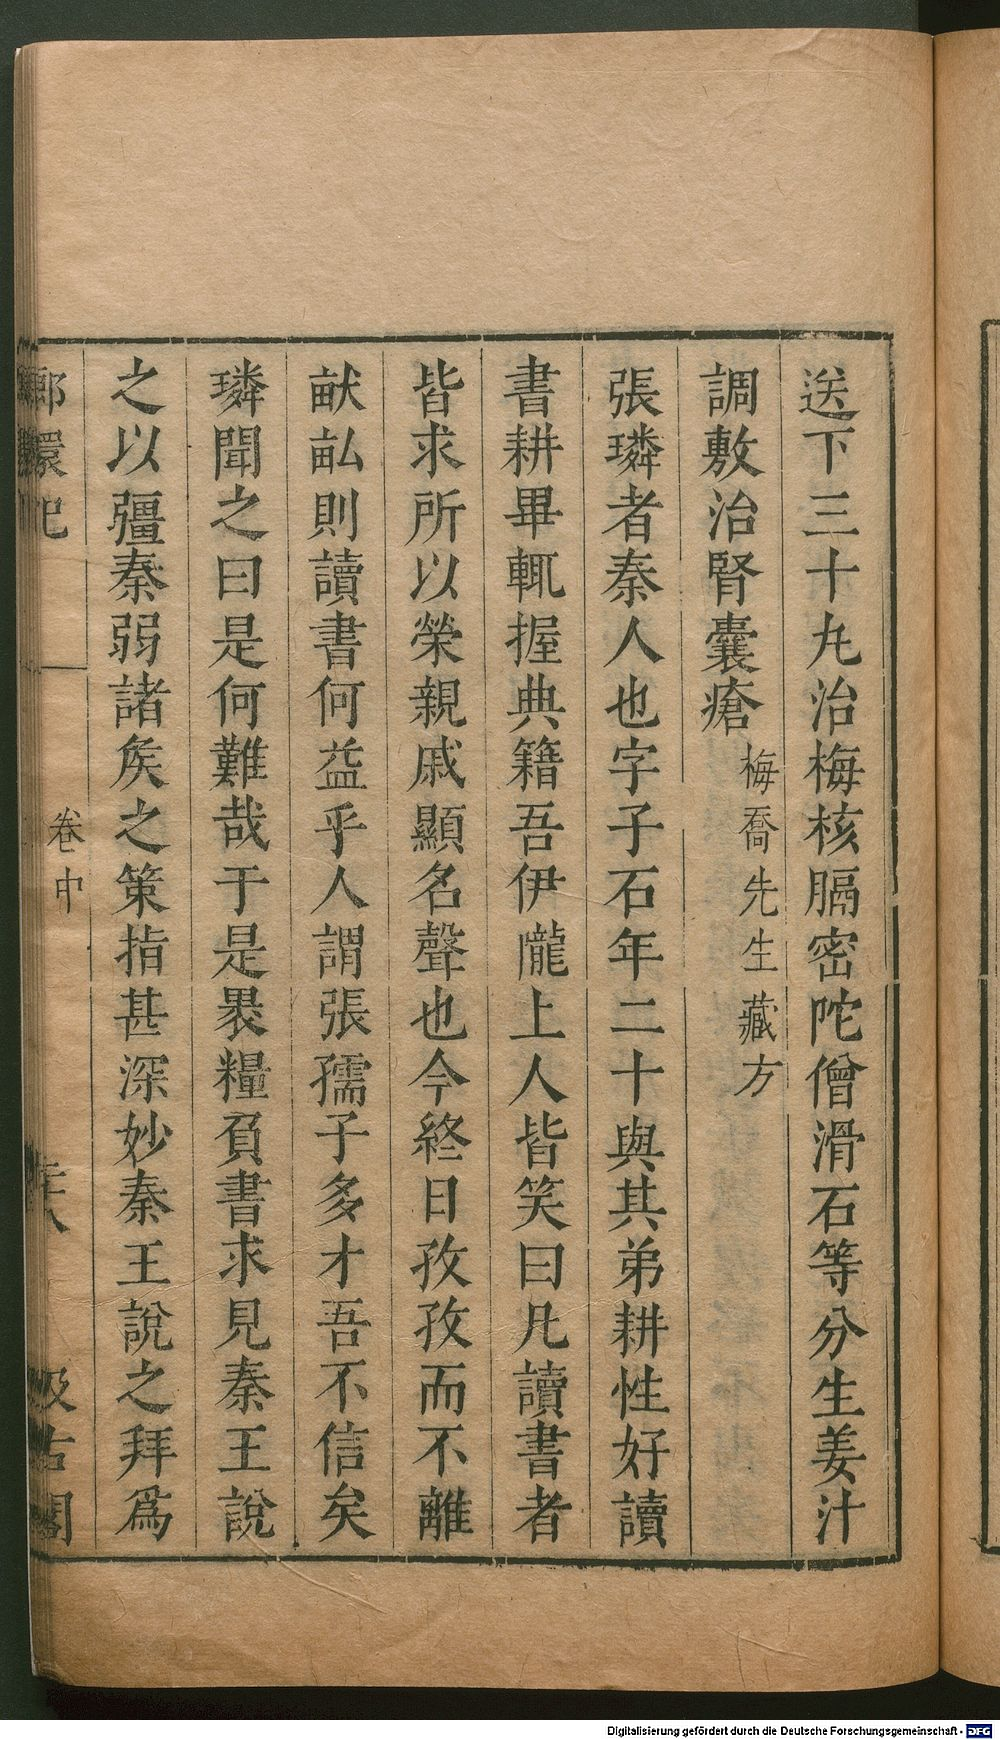 送下三十丸治梅核膈密陀僧滑石等分生姜汁
調敷治腎囊瘡梅喬先生藏方
張璘者秦人也字子石年二十與其弟耕性好讀
書耕畢輒握典籍吾伊隴上人皆笑曰凡讀書者
皆求所以榮親戚顯名聲也今終日孜孜而不離
畎畝則讀書何益乎人謂張孺子多才吾不信矣
璘聞之曰是何難哉于是褁糧負書求見秦王說
之以彊秦弱諸矦之策指甚深妙秦王說之拜爲
卷中
古閣
Digitalisierung gefördert durch die Deutsche Forschungsgemeinschaft - DFG